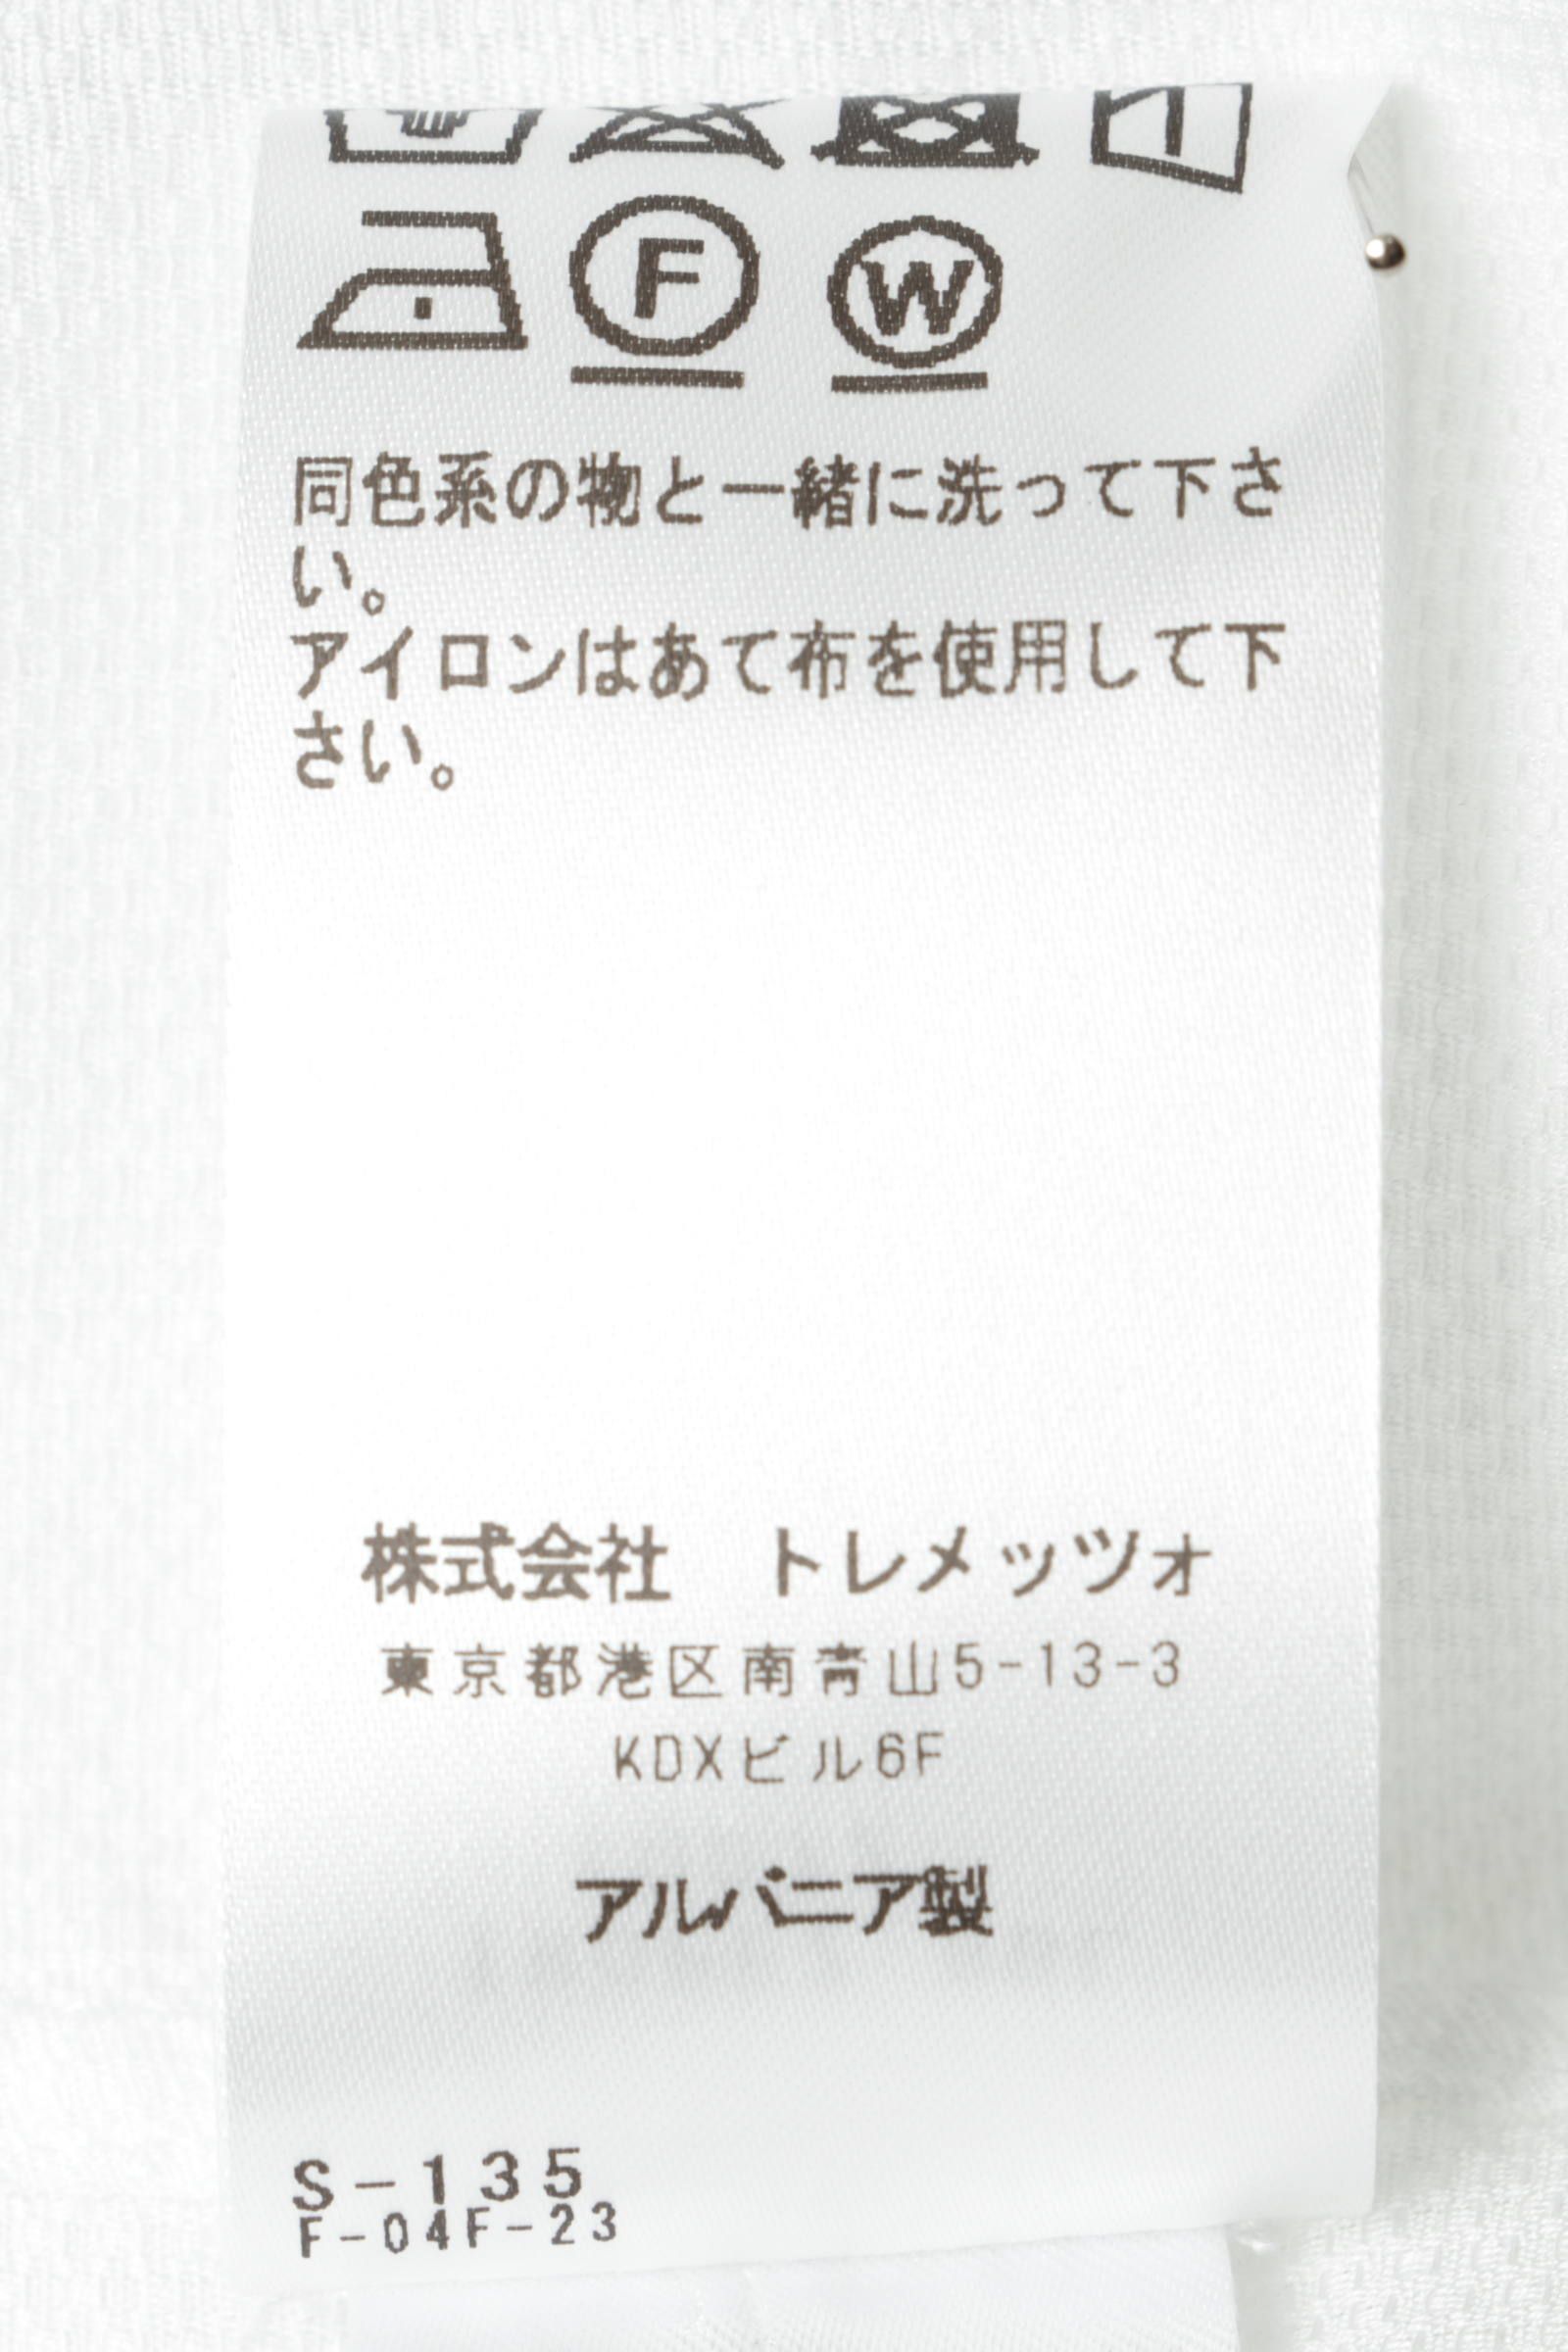 F
W
同色系の物と一緒に洗って下さ
い。
アイロンはあて布を使用して下
さい。
株式会社　トレメッツォ
東京都港区南青山5-13-3
KDXビル6F
アルバニア製
S-135
F-04F-23